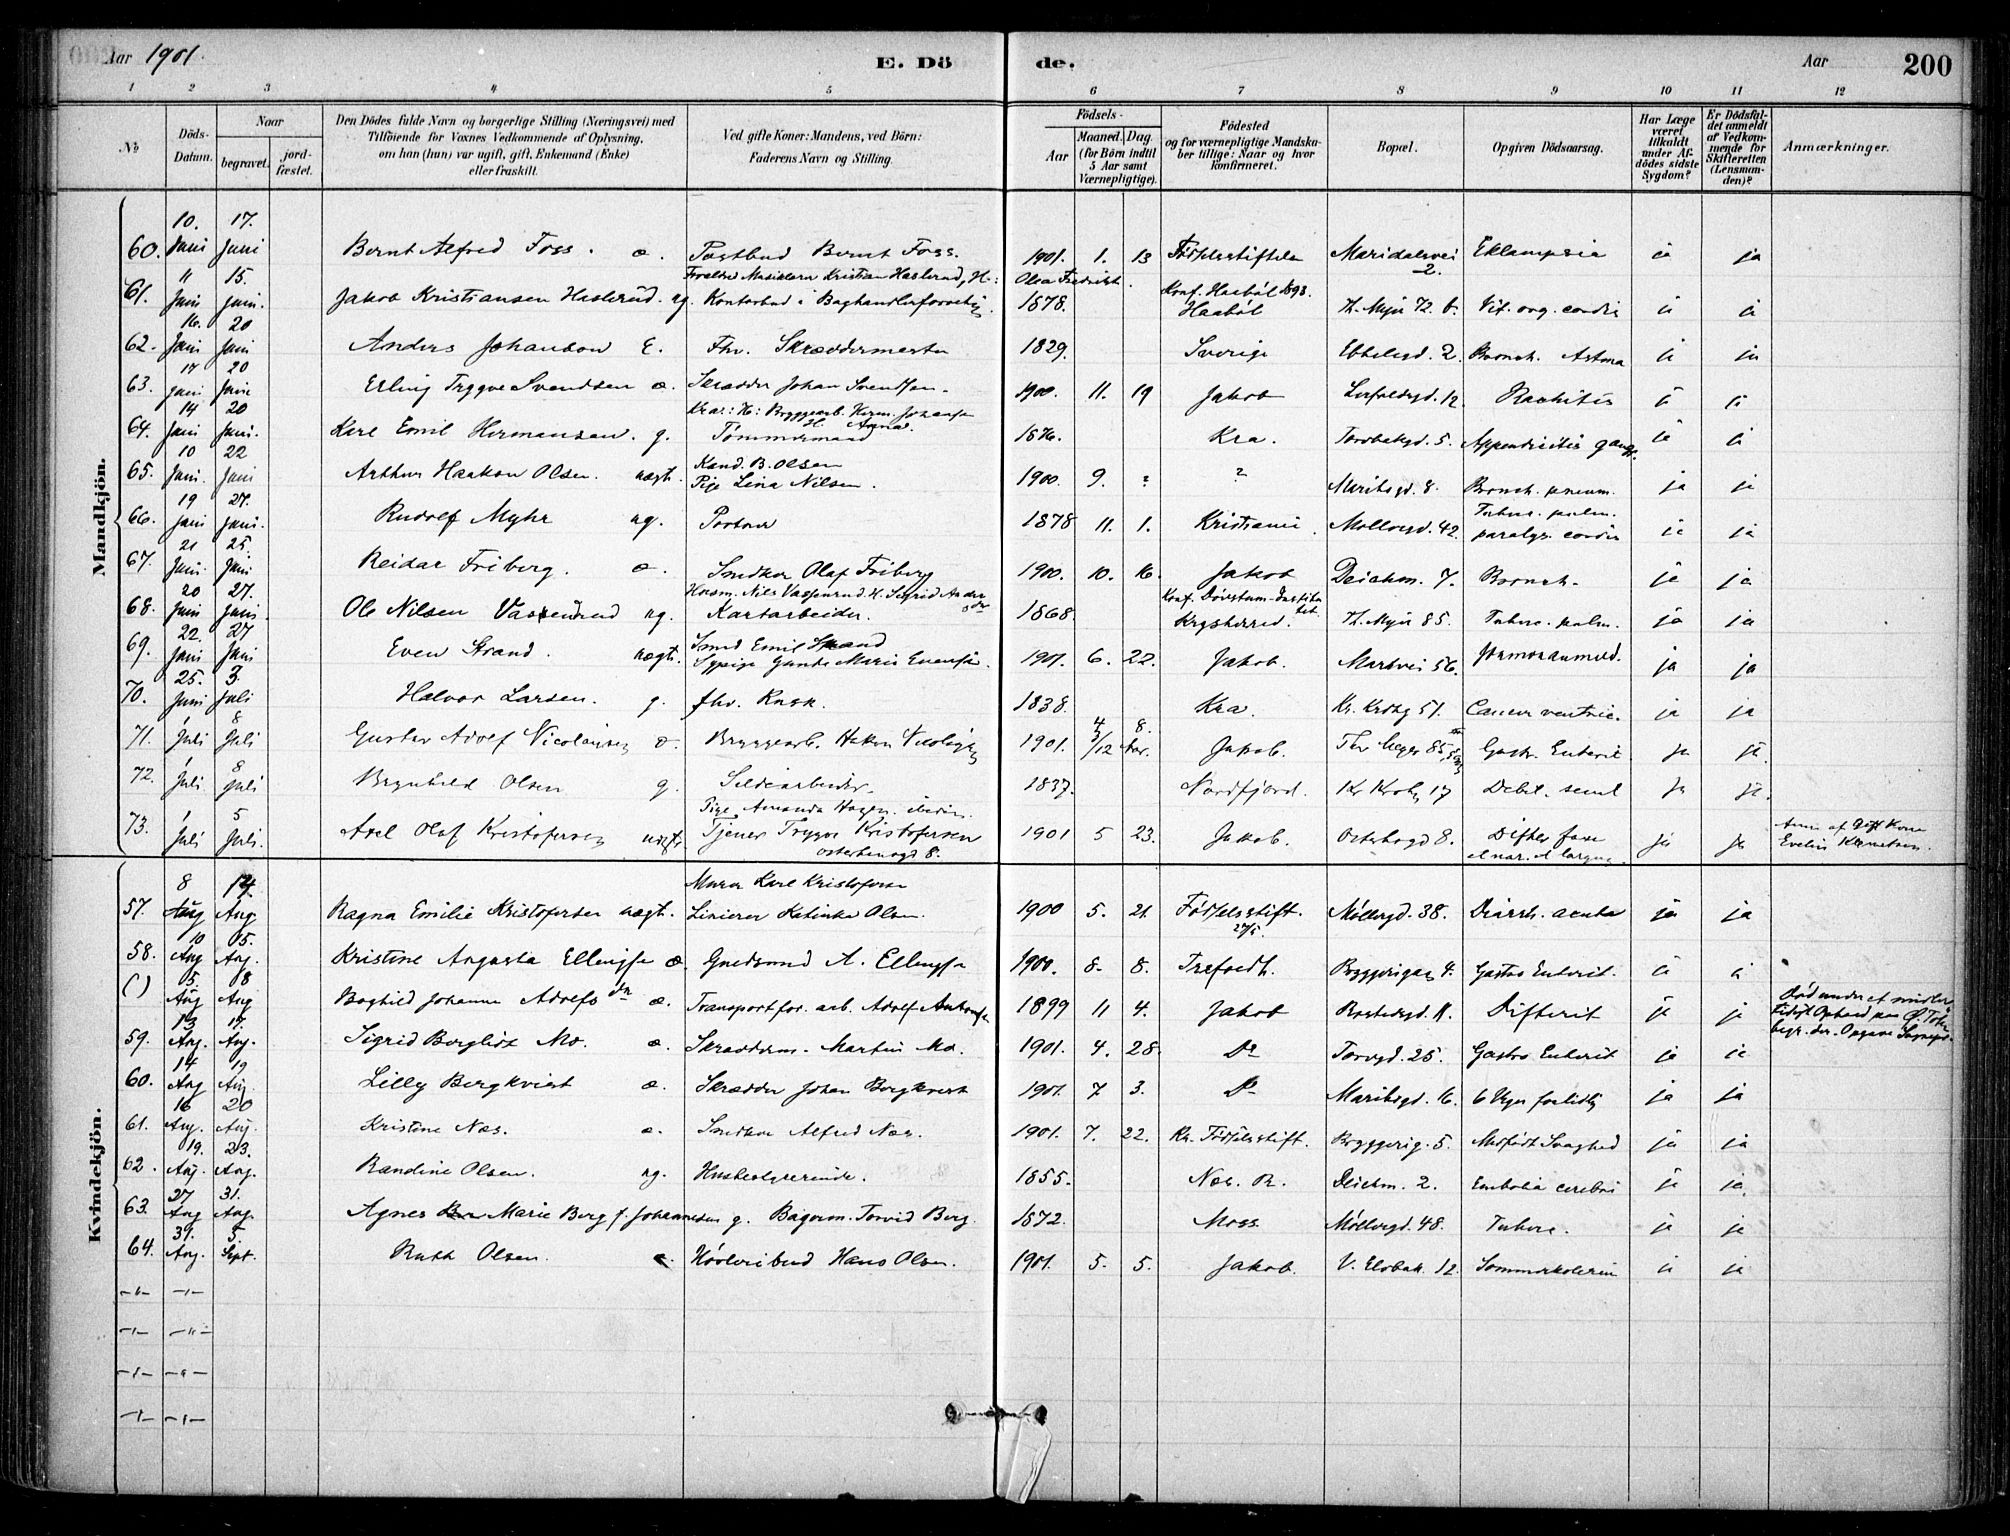 Aar 1901. E. Döde. Aar 200
1 2 3 4 5 6 7 8 9 10 11 12
No Döds-Datum. Naar begravet. jord-fæstet. Den Dödes fulde Navn og borgerlige Stilling (Næringsvei) med Tilföiende for Voxnes Vedkommende af Oplysning, om han (hun) var ugift, gift, Enkemand (Enke) eller fraskilt. Ved gifte Koner: Mandens, ved Börn: Faderens Navn og Stilling. Födsels- Aar Maaned. Dag. (for Börn indtil 5 Aar samt Værnepligtige). Födested og for værnepligtige Mandskaber tillige: Naar og hvor konfirmeret. Bopæl. Opgiven Dödsaarsag. Har Læge været tilkaldt under Afdödes sidste Sygdom? Er Dödsfaldet anmeldt af Vedkommende for Skifteretten (Lensmanden)? Anmærkninger.
Mandkjön.
60. 10. Juni 17. Juni Bernt Alfred Foss. æ. Postbud Bernt Foss. 1901. 1. 13 Fødselsstiftelsen Maridalsvei 2. Eklampsia ja ja
61. 11 Juni 15. Juni. Jakob Kristiansen Haslerud. ug. Kontorbud i 1878. Konf. Haabøl 1893. Haabøl Th. Myir 72 b. Vit. org. cordis ja ja
62. 16. Juni 20 Juni Anders Johanson E. Fhv. Skræddermester 1829. Sverige 2. Bronch. Astma ja ja
63. 17 Juni 20 Juni Erling Trygve Svendsen æ. Skrædder Johan Svendsen. 1900. 11. 19 Jakob 12. Rachitis ja ja
64. 14 Juni 20 Juni. Karl Emil Hermansen. g. Tømmermand 1876. Kra. Torvbakgd. 5. Appendicitis gangr. ja ja
65. 10 Juni. 22 Juni Arthur Haakon Olsen. uægt. Kand. B. Olsen Pige Lina Nilsen. 1900. 9. ? ? Maribogd. 8. Bronch. pneum. ja ja
66. 19 Juni 27. Juni. Rudolf Myhr ug. Portner 1878 11. 1. Kristiania. Mollergd. 42. Tuberc. pulm. paralys. cordis ja ja
67. 21 Juni. 25. Juni Reidar Friberg. æ. Smedker Olaf Friberg 1900. 10. 16. Jakob Deichm. 7. Bronch. ja ja
68. 20 Juni 27. Juni. Ole Nilsen Vassenrud ug. Kartarbeider. 1868. Th. Myir 85. Tuberc. pulm. ja ja
69. 22. Juni 27 Juni Even Strand. uægt. Smed Emil Strand Sypige Gunda Marie Evensen. 1901. 6. 22. Jakob. Markvei 56. ja ja
70. 25. Juni 3. Juli Halvor Larsen. g. fhv. Kusk. 1838. Kra. Kr. Krohg 51. Cancer ventric. ja ja
71. 1 Juli 8 Juli Gustav Adolf Nicolaysen æ. Bryggearb. Hakon Nicolaysen 1901. 4/12 8. Aar. Jakob. Thv Meyer 85 Gastr. Enterit ja ja
72. 1 Juli 8 Juli Brynhild Olsen g. Sildearbeider. 1837. Nordfjord. Kr Krohg 17 Debil. senil ja ja.
73. 1 Juli 5 Juli. Axel Olaf Kristofersen uægt. Pige Amanda Hagen. Tjener Trygve Kristofersen Osterhausgd 8. 1901 5 23. Jakob. 8. Difter faue et nar. et laryng. ja ja
Kvindekjön.
57. 8 Aug 14 Aug. Ragna Emilie Kristofersen uægt. Murer Karl Kristofersen Linierer Katinka Olsen. 1900 5. 21. Fødselsstift. 27/5. Møllergd. 38. Diarrh. acuta ja ja
58. 10 Aug 15. Aug. Kristine Augusta Ellingsen æ. Guldsmed A. Ellingsen 1900. 8. 8. Trefoldh. 4. Gastro Enterit. ja ja
( ) 5. Aug 8 Aug Boghild Johanne Adolfsdtr æ. Transportfor. arb. Adolf 1899 11 4. Jakob 11. Difterit ja ja
59. 13 Aug. 17. Aug. Sigrid Bergliot Mo. æ. Skrædderm. Martin Mo. 1901. 4. 28. Do Torvgd. 25. Gastro Enterit ja ja
60. 14 Aug 19 Aug. Lilly Bergkvist æ. Skrædder Johan Bergkvist 1901. 7 3. Do Maribogd. 16. 6 Uger fortidlig ja ja
61. 16 Aug. 20 Aug. Kristine Næs. æ. Smedker Alfred Næs. 1901. 7. 22. Kr. Fødselsstift. Bryggerig. 5. Medfødt Svaghed ja ja
62. 19. Aug. 23. Aug. Randine Olsen. ug. Husbestyrerinde. 1855. Næs. R. Deichm. 2. Embolia cerebri ja ja.
63. 27 Aug 31. Aug. Agnes Marie Berg f. Johannesen g. Bagerm. Torvid Berg. 1872. Moss Møllergd. 48. Tuberc. ja ja
64. 31. Aug. 5. Sept. Ruth Olsen. æ. Høvleribud Hans Olsen. 1901. 5. 5. Jakob. V. Elvbak. 12. Sommerkolerin ja ja